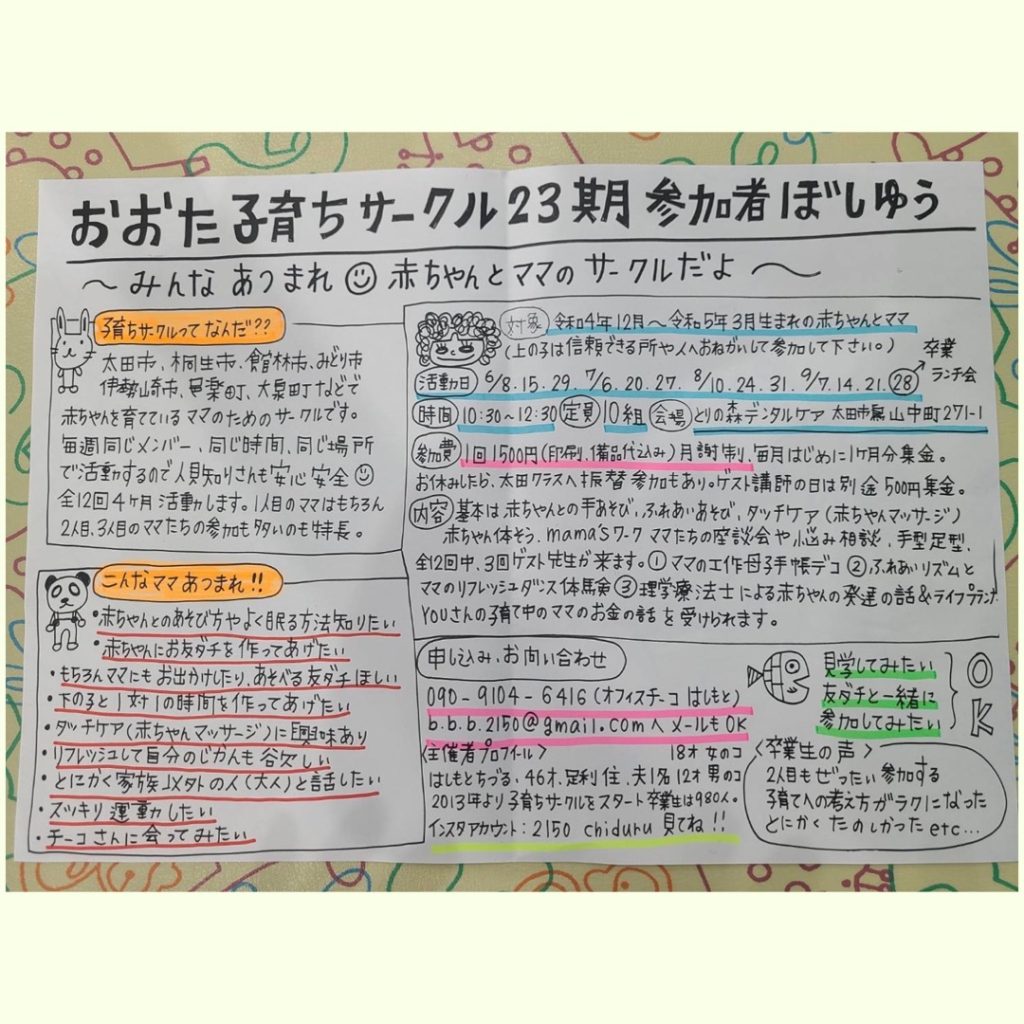 おおた子育ちサークル23期参加者ぼしゅう
～みんなあつまれ☺赤ちゃんとママのサークルだよ～
子育ちサークルってなんだ??
太田市、桐生市、館林市、みどり市
伊勢崎市、邑楽町、大泉町などで
赤ちゃんを育ているママのためのサークルです。
毎週同じメンバー、同じ時間、同じ場所
で活動するので人見知りさんも安心安全☺
全12回4ヶ月活動します。1人目のママはもちろん
2人目、3人目のママたちの参加も多いのも特長。
こんなママあつまれ!!
・赤ちゃんとのあそび方やよく眠る方法知りたい
・赤ちゃんにお友ダチを作ってあげたい
・もちろんママにもお出かけしたり、あそべる友ダチほしい
・下の子と1対1の時間を作ってあげたい
・タッチケア(赤ちゃんマッサージ)に興味あり
・リフレッシュして自分のじかんも欲しい
・とにかく家族以外の人(大人)と話したい
・スッキリ運動したい
・チーコさんに会ってみたい
対象 令和4年12月～令和5年3月生まれの赤ちゃんとママ
(上の子は信頼できる所や人へおねがいして参加して下さい。)
活動日 6/8.15.29. 7/6.20.27. 8/10.24.31. 9/7.14.21.28
卒業
ランチ会
時間 10:30～12:30 定員 10組 会場 とりの森デンタルケア 太田市鳥山中町271-1
参加費 1回1500円(印刷、備品代込み)月謝制、毎月はじめに1ヶ月分集金。
お休みしたら、太田クラスへ振替参加もあり。ゲスト講師の日は別途500円集金。
内容 基本は赤ちゃんとの手あそび、ふれあいあそび、タッチケア(赤ちゃんマッサージ)
赤ちゃん体そう、mama'sワーク ママたちの座談会や悩み相談、手型足型、
全12回中、3回ゲスト先生が来ます。①ママの工作母子手帳デコ ②ふれあいリズムと
ママのリフレッシュダンス体験 ③理学療法士による赤ちゃんの発達の話&ライフプランナー
YOUさんの子育て中のママのお金の話を受けられます。
申し込み、お問い合わせ
090-9104-6416(オフィスチーコ はしもと)
b.b.b.2150@gmail.comへメールもOK
<主催者プロフィール> 18才女のコ
はしもとちづる・46才、足利住、夫1名12才男のコ
2013年より子育ちサークルをスタート卒業生は980人。
インスタアカウント:2150 chiduru 見てね!!
見学してみたい
友ダチと一緒に
参加してみたい
OK
<卒業生の声>
2人目もぜったい参加する
子育てへの考え方がラクになった
とにかくたのしかったetc…